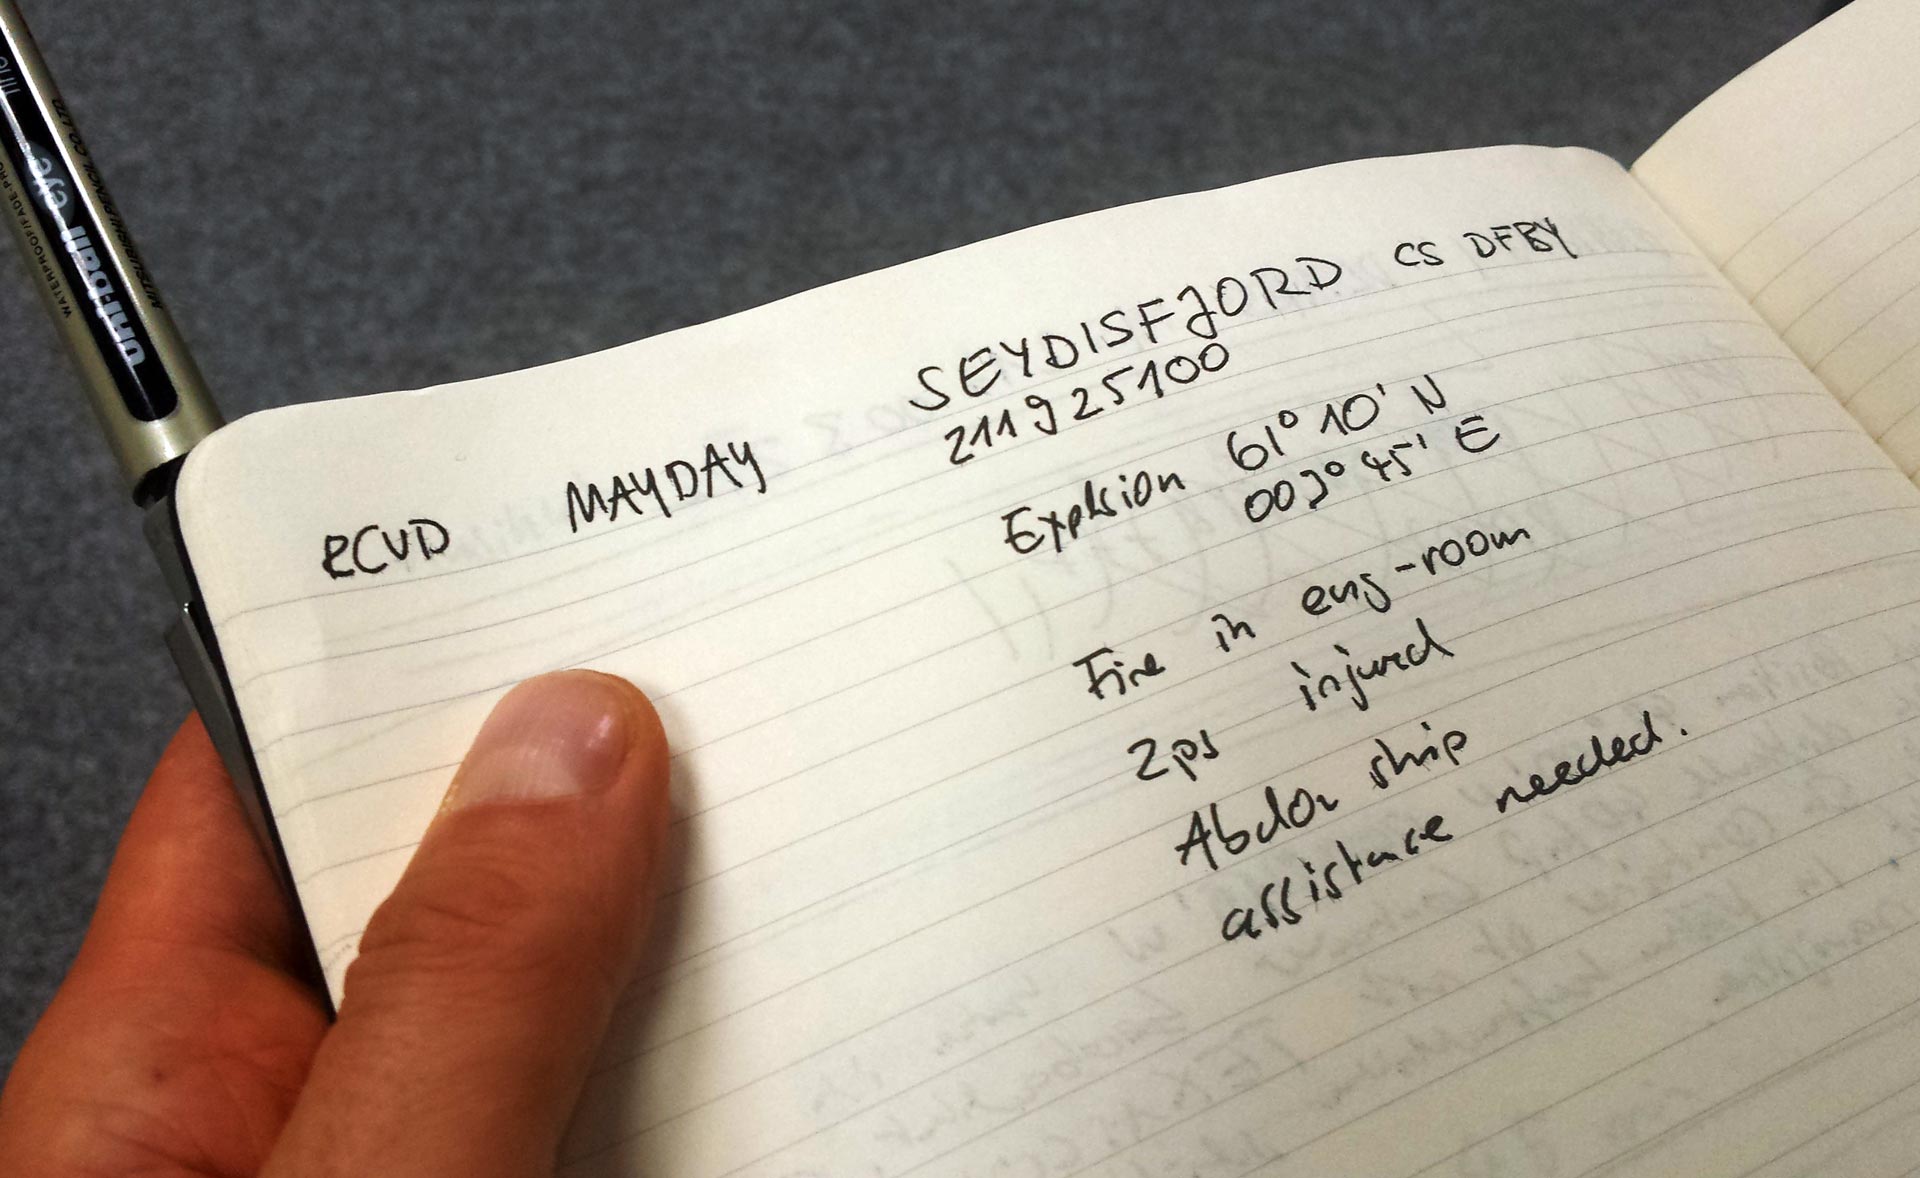 RCVD MAYDAY SEYDISFJORD CS DFBY
211925100
Explsion 61° 10' N
003° 45' E
Fire in eng-room
2ps injured
Abdon ship
assistance needed.
uni-ball eye
WATERPROOF/FADE-PRO
MITSUBISHI PENCIL CO. LTD